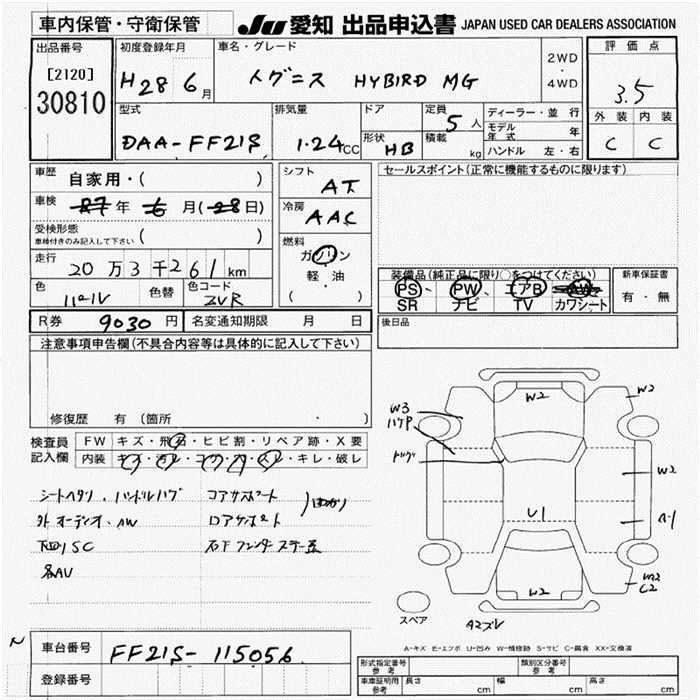 車内保管・守衛保管
JU 愛知 出品申込書 JAPAN USED CAR DEALERS ASSOCIATION
出品番号
[2120]
30810
初度登録年月
H28 6月
車名・グレード
イグニス HYBIRD MG
2WD
・
4WD
評価点
3.5
外装 内装
C C
型式
DAA-FF21S
排気量
1.24CC
ドア
形状
HB
定員
5人
積載
kg
ディーラー・並行
モデル年式 年
ハンドル 左・右
車歴
自家用・( )
車検
27年 6月(28日)
受検形態
車検付きのみ記入して下さい ( )
走行
20万3千261km
色
色替
色コード
ZVR
シフト
AT
冷房
AAC
燃料
ガソリン
軽・油
( ・ )
セールスポイント(正常に機能するものに限ります)
装備品(純正品に限り○をつけてください)
PS PW エアB AW
SR ナビ TV カワシート
新車保証書
有・無
R券 9030円 名変通知期限 月 日
後日品
注意事項申告欄(不具合内容等は具体的に記入して下さい)
修復歴 有(箇所 ・ )
検査員
記入欄
FW キズ・飛石・ヒビ割・リペア跡・X要
内装 キズ・汚レ・コゲ・穴・スレ・キレ・破レ
シートヘタリ・ハンドルハゲ
外オーディオ・AW
下回りSC
各AV
W2
W2
W3
ハゲP
W2
U1
A-1
W2
C2
W2
A2ズレ
スペア
A-キズ E-エクボ U-凹み W-補修跡 S-サビ C-腐食 XX-交換済
N
車台番号
FF21S-115056
登録番号
形式指定番号
参考
類別区分番号
参考
車庫証明用
参考
長さ cm 幅 cm 高さ cm